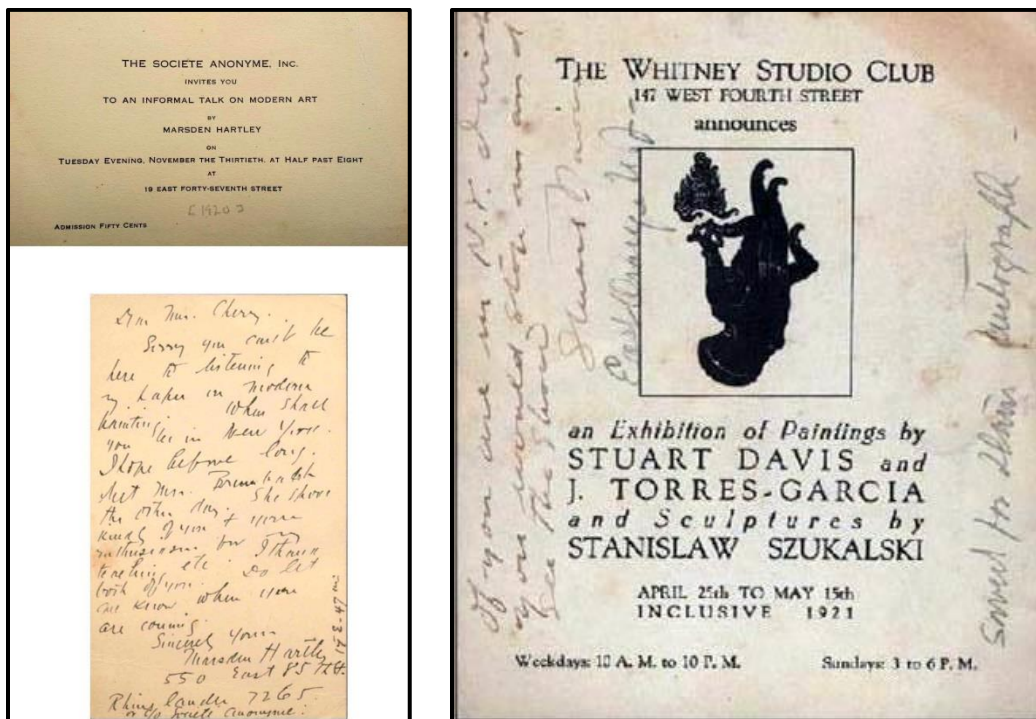 THE SOCIETE ANONYME, INC.
INVITES YOU
TO AN INFORMAL TALK ON MODERN ART
BY
MARSDEN HARTLEY
ON
TUESDAY EVENING, NOVEMBER THE THIRTIETH, AT HALF PAST EIGHT
AT
19 EAST FORTY-SEVENTH STREET
[1920]
ADMISSION FIFTY CENTS
Dear Mrs. Cherry.
Sorry you can't be
here to listening to
my paper on modern
painting. When shall
you be in New York.
I hope before long.
Met Mrs.
the other day. She spoke
kindly of you & your
enthusiasm for my
teaching etc. I thank
both of you. Do let
me know when you
are coming.
Sincerely yours
Marsden Hartley
550 East 85
Rhinelander 7265
or c/o Societe Anonyme.
19 E-47
THE WHITNEY STUDIO CLUB
147 WEST FOURTH STREET
announces
an Exhibition of Paintings by
STUART DAVIS and
J. TORRES-GARCIA
and Sculptures by
STANISLAW SZUKALSKI
APRIL 25th TO MAY 15th
INCLUSIVE 1921
Weekdays: 10 A. M. to 10 P. M.
Sundays: 3 to 6 P. M.
If you are in N.Y. drive
you would stop in and
see the show
Stuart Davis
Saved for Autograph